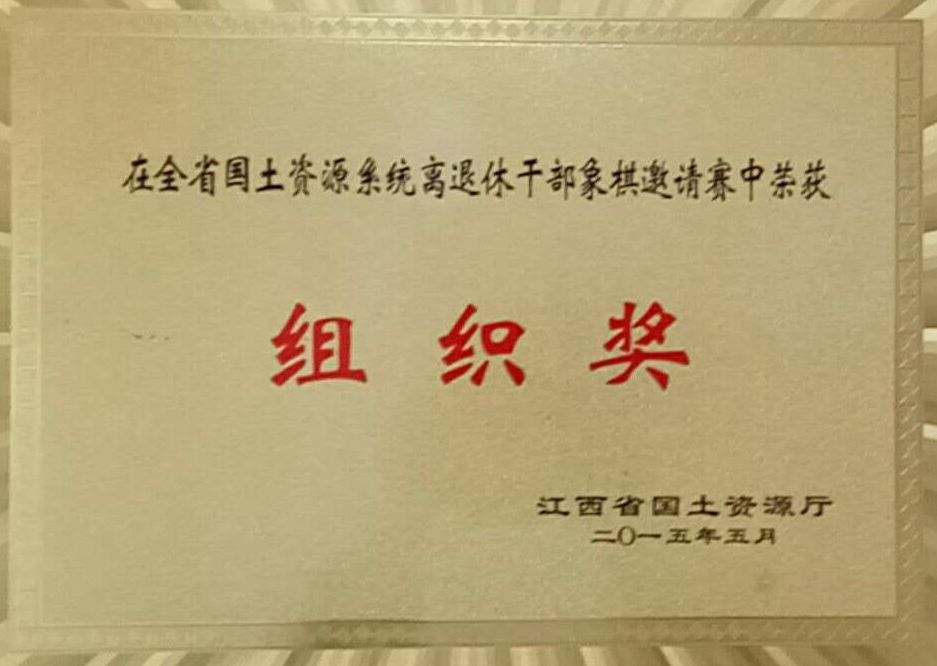 在全省国土资源系统离退休干部象棋邀请赛中荣获
组织奖
江西省国土资源厅
二〇一五年五月